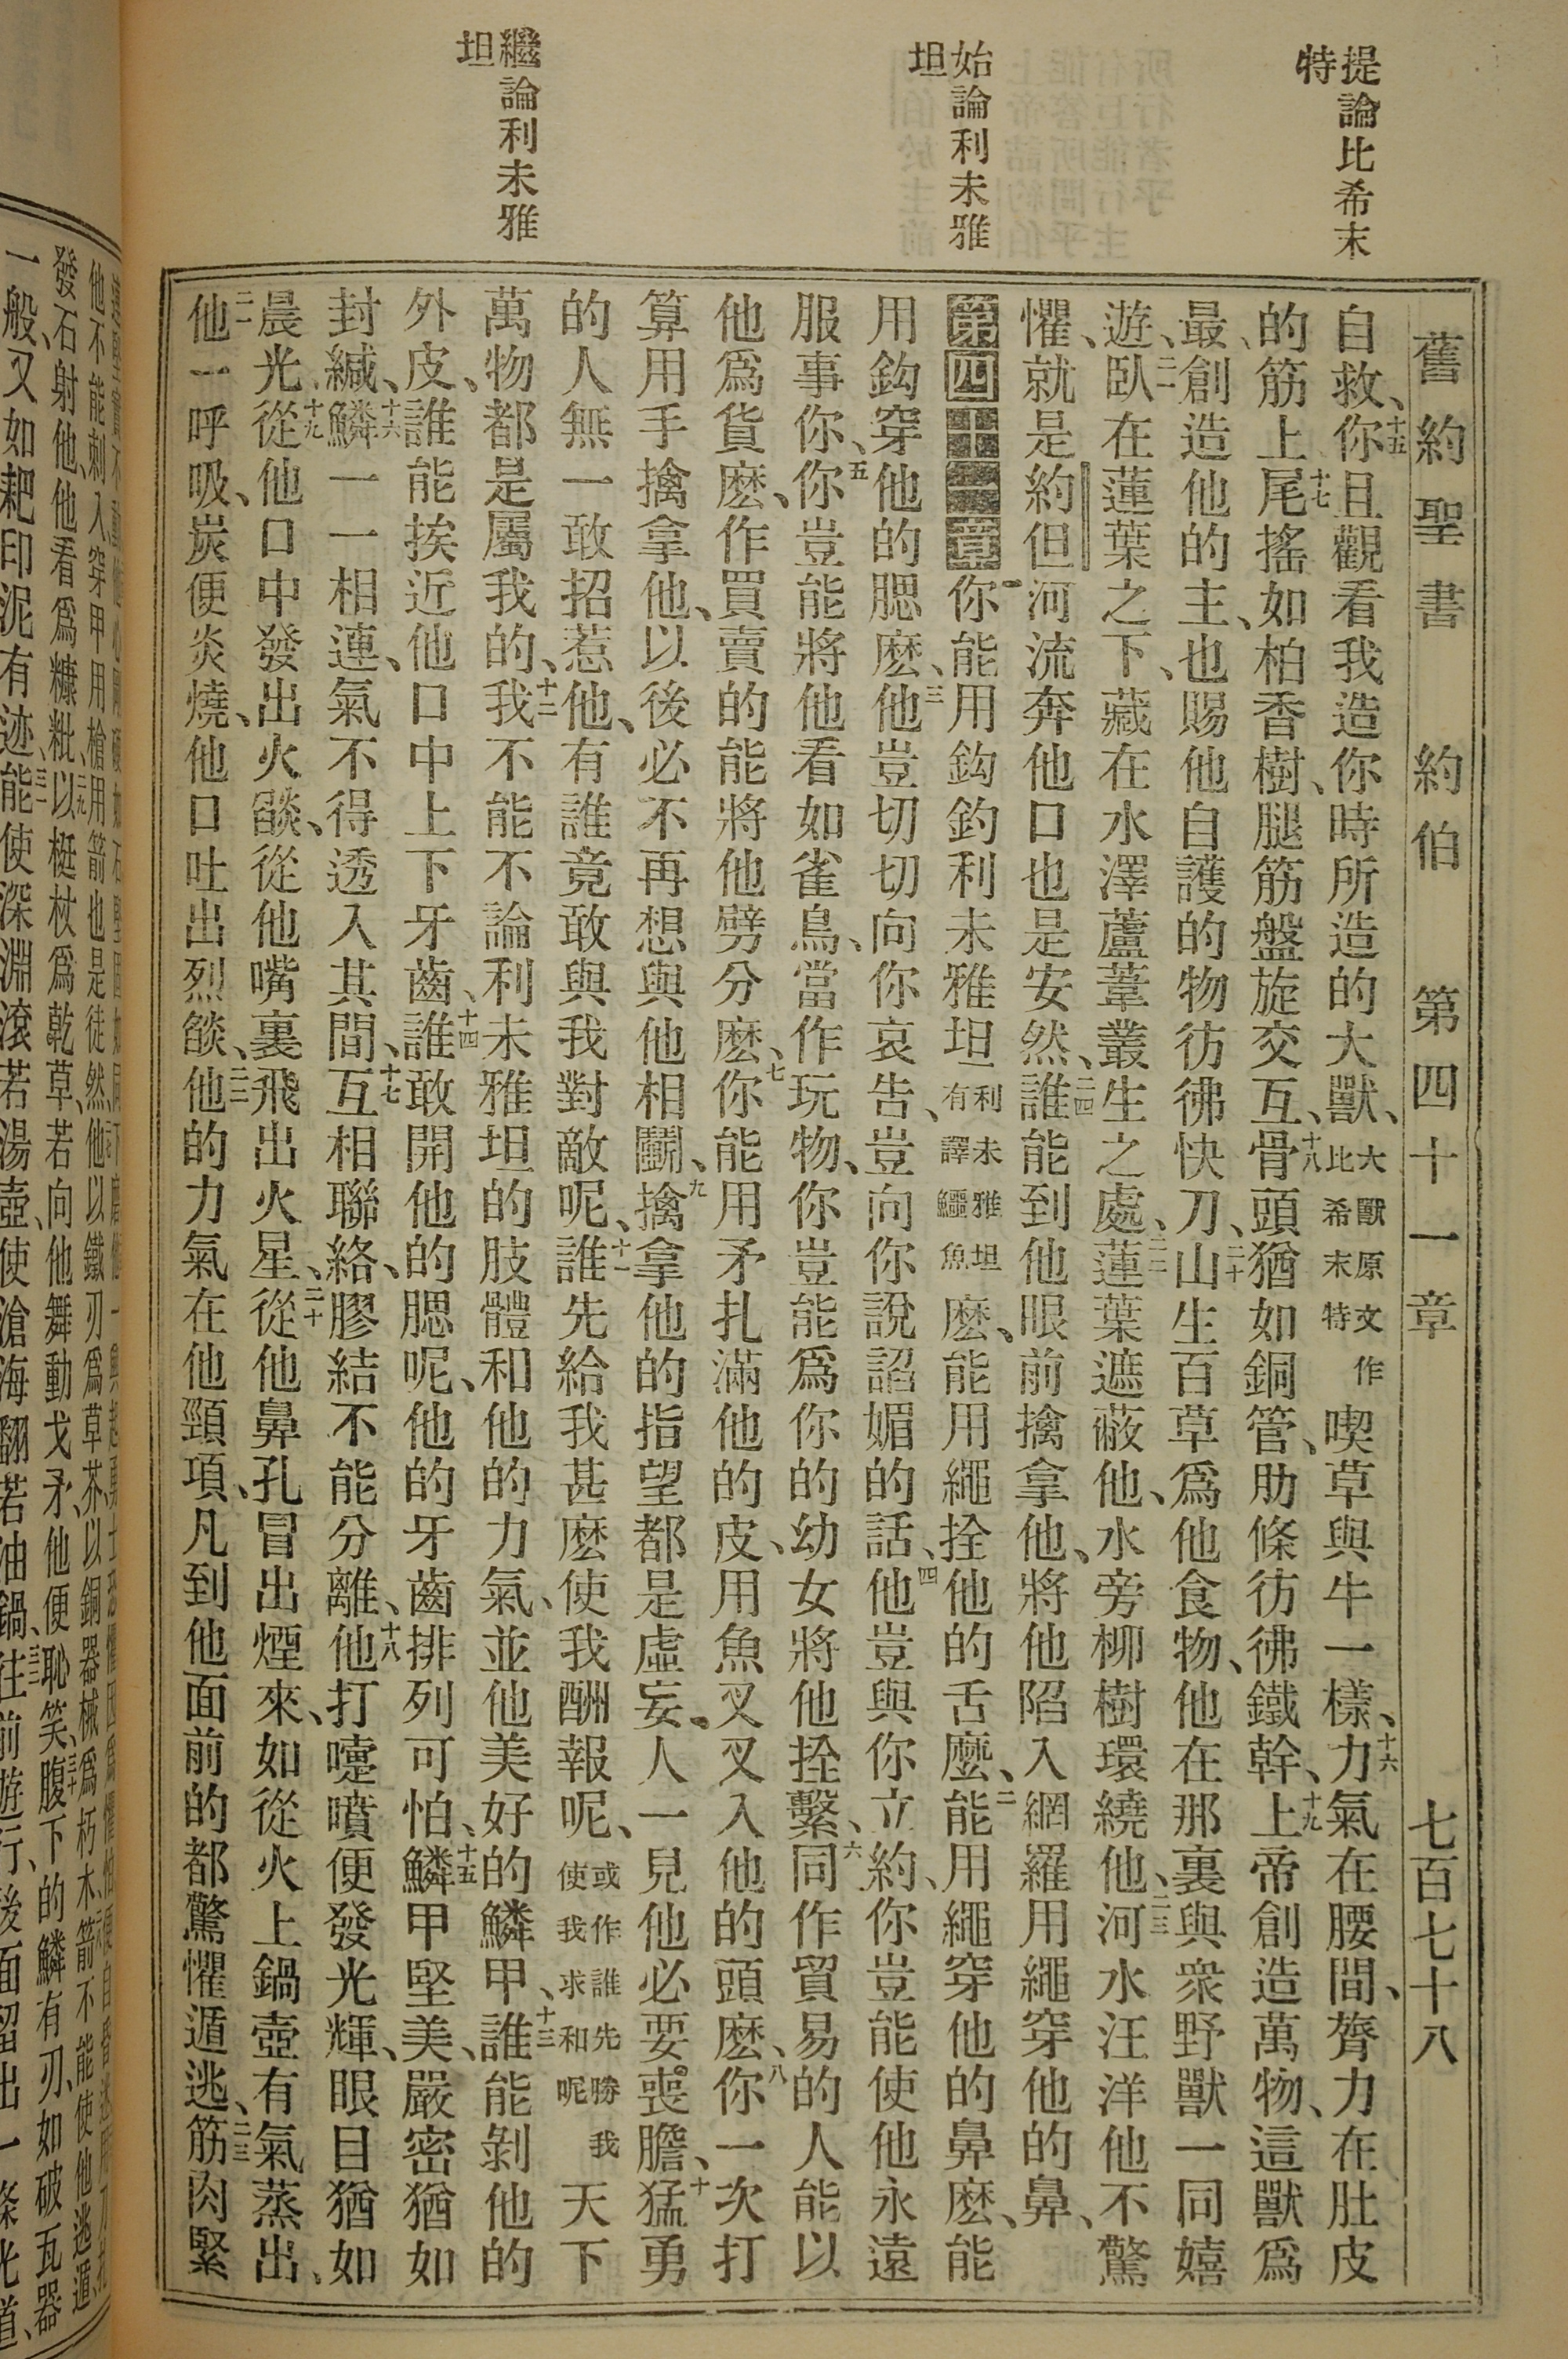 提論比希末
特
始論利未雅
坦
繼論利未雅
坦
舊約聖書 約伯 第四十一章 七百七十八
自救、十五你且觀看我造你時所造的大獸、大獸原文作比希末特喫草與牛一樣、十六力氣在腰間、膂力在肚皮
的筋上、十七尾搖如柏香樹、腿筋盤旋交互、十八骨頭猶如銅管、肋條彷彿鐵幹、十九上帝創造萬物、這獸爲
最、創造他的主、也賜他自護的物彷彿快刀、二十山生百草爲他食物、他在那裏與衆野獸一同嬉
遊、二一臥在蓮葉之下、藏在水澤蘆葦叢生之處、二二蓮葉遮蔽他、水旁柳樹環繞他、二三河水汪洋他不驚
懼、就是約但河流奔他口也是安然、二四誰能到他眼前擒拿他、將他陷入網羅用繩穿他的鼻、
第四十一章一你能用鈎釣利未雅坦利未雅坦有譯鱷魚麽、能用繩拴他的舌麽、二能用繩穿他的鼻麽、能
用鈎穿他的腮麽、三他豈切切向你哀告、豈向你說諂媚的話、四他豈與你立約、你豈能使他永遠
服事你、五你豈能將他看如雀鳥、當作玩物、你豈能爲你的幼女將他拴繫、六同作貿易的人能以
他爲貨麽、作買賣的能將他劈分麽、七你能用矛扎滿他的皮、用魚叉叉入他的頭麽、八你一次打
算用手擒拿他、以後必不再想與他相鬬、九擒拿他的指望都是虛妄、人一見他必要喪膽、十猛勇
的人無一敢招惹他、有誰竟敢與我對敵呢、十一誰先給我甚麽使我酬報呢、或作誰先勝我使我求和呢天下
萬物都是屬我的、十二我不能不論利未雅坦的肢體和他的力氣、並他美好的鱗甲、十三誰能剝他的
外皮、誰能挨近他口中上下牙齒、十四誰敢開他的腮呢、他的牙齒排列可怕、十五鱗甲堅美、嚴密猶如
封緘、十六鱗一一相連、氣不得透入其間、十七互相聯絡、膠結不能分離、十八他打嚏噴便發光輝、眼目猶如
晨光、十九從他口中發出火燄、從他嘴裏飛出火星、二十從他鼻孔冒出煙來、如從火上鍋壺有氣蒸出、
二一他一呼吸、炭便炎燒、他口吐出烈燄、二二他的力氣在他頸項、凡到他面前的都驚懼遁逃、二三筋肉緊
他不能刺入穿甲用槍用箭也是徒然、他以鐵刃爲草芥、以銅器械爲朽木、箭不能使他逃遁、
發石射他、他看爲糠粃、二九以梃杖爲乾草、若向他舞動戈矛、他便恥笑、三十腹下的鱗有刃、如破瓦器
一般、又如耙印泥有迹、三一能使深淵滾若湯壺、使滄海翻若油鍋、三二往前遊行、後面留出一條光道、